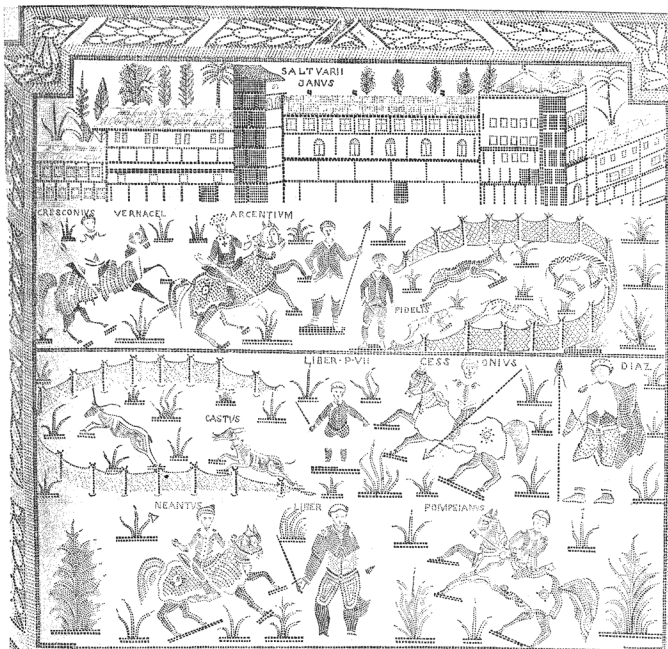 SALTVARII
JANVS
CRESCONIVS VERNACEL ARCENTIVM
FIDELIS
LIBER·P·VII CESS ONIVS DIAZ
CASTVS
NEANTVS LIBER POMPEIANVS